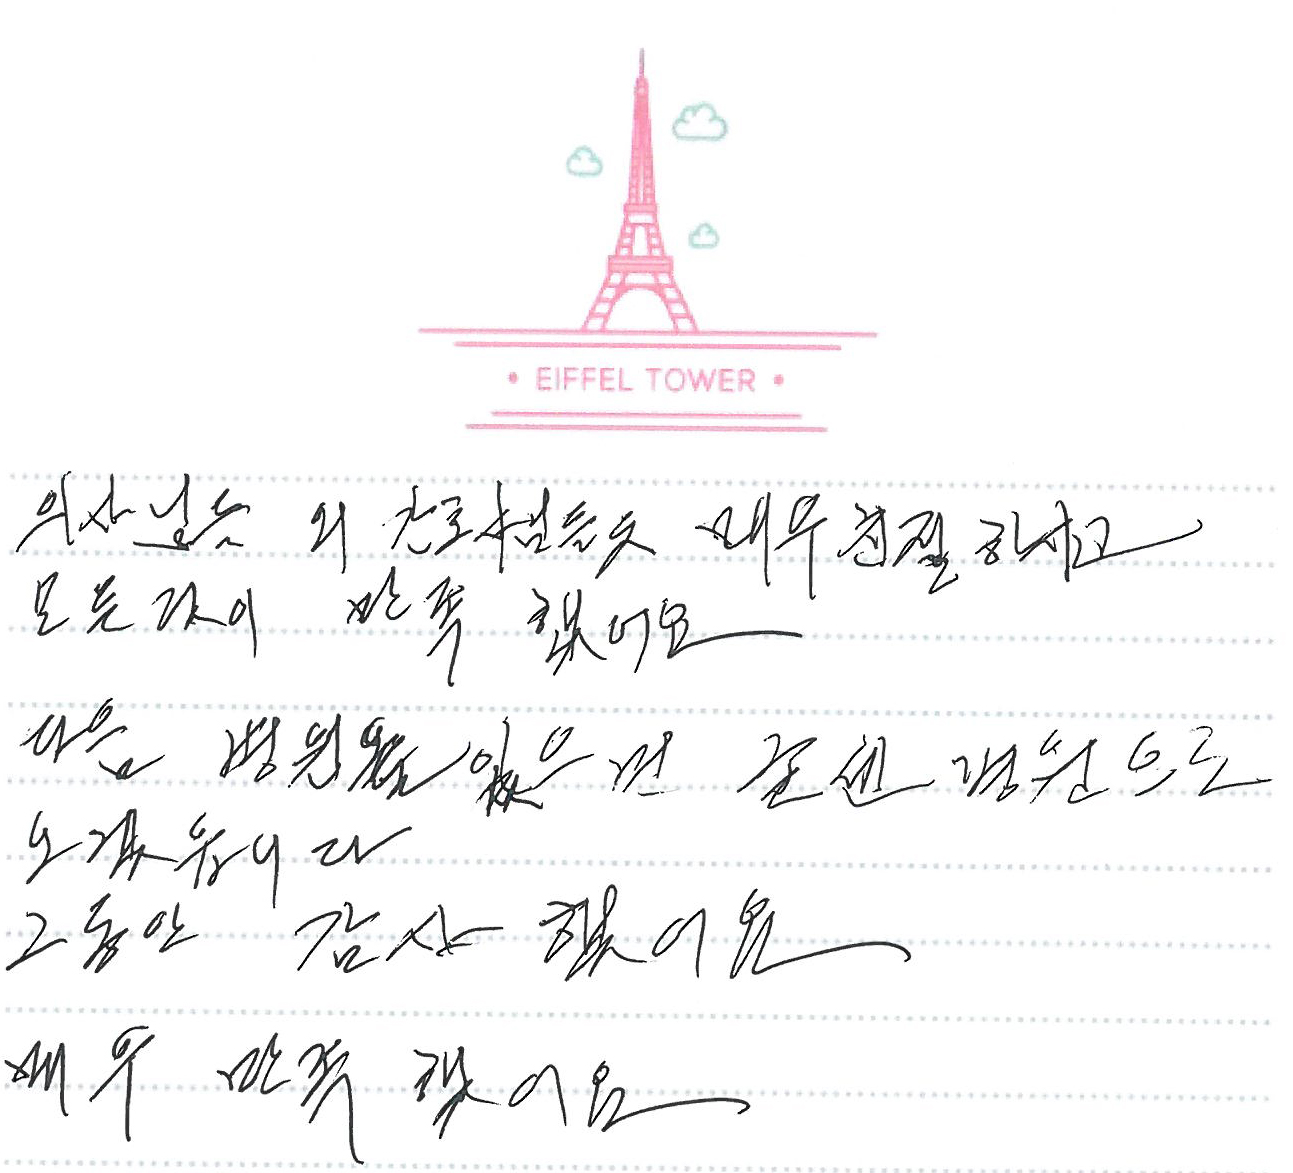 • EIFFEL TOWER •
의사님들 외 간호사님들도 매우 친절하시고
모든 것이 만족 했어요
다음 병원 있으면 병원으로
오겠습니다
그동안 감사 했어요
매우 만족 했어요